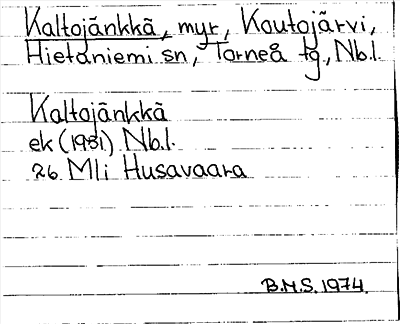 Kaltojänkkä, myr, Koutojärvi,
Hietaniemi sn, Torneå tg., Nb.l.
Kaltojänkkä
ek (1931) Nb.l.
26 Mli Husavaara
B.M.S. 1974.